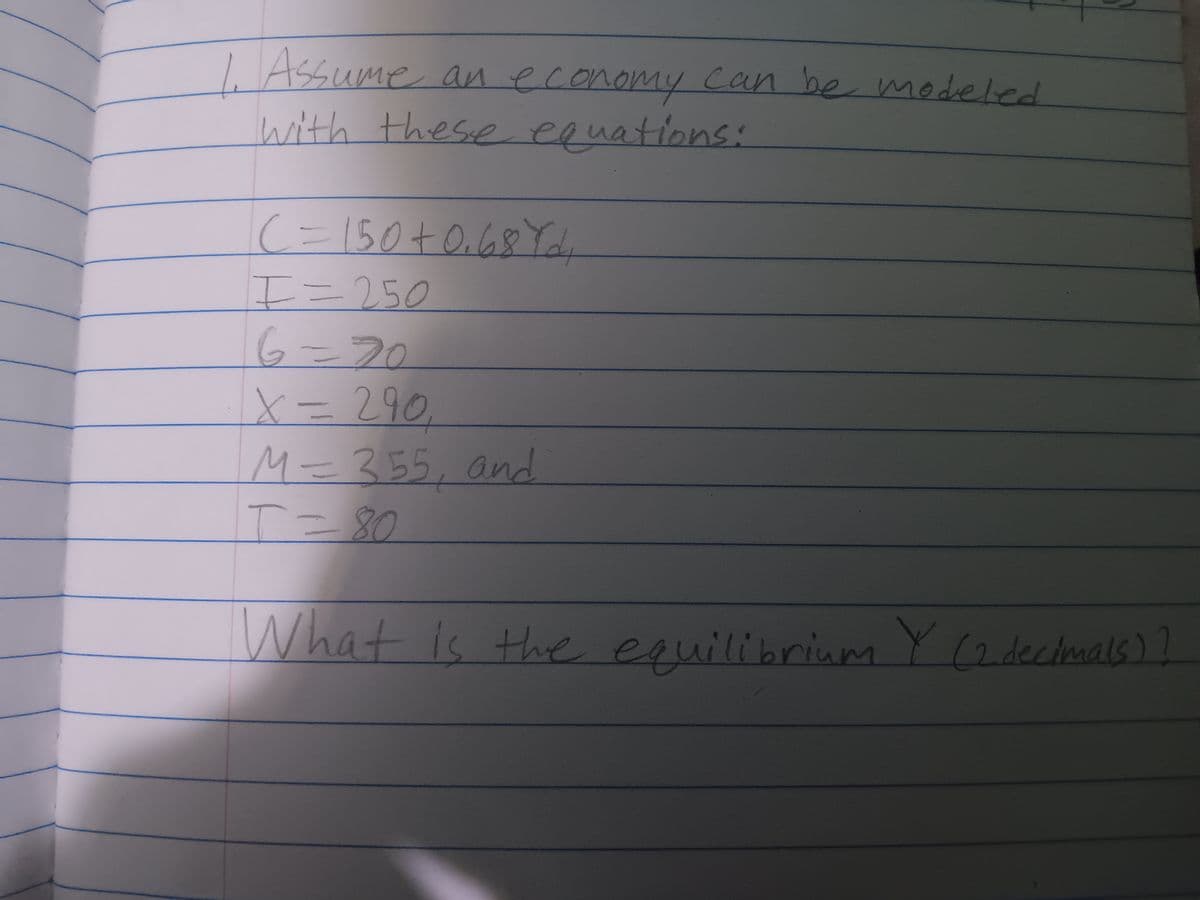 1. Assume an economy can be modeled
with these equations:
C = 150 + 0.68 Yd,
I = 250
G = 70
X = 290,
M = 355, and
T = 80
What is the equilibrium Y (2 decimals)?